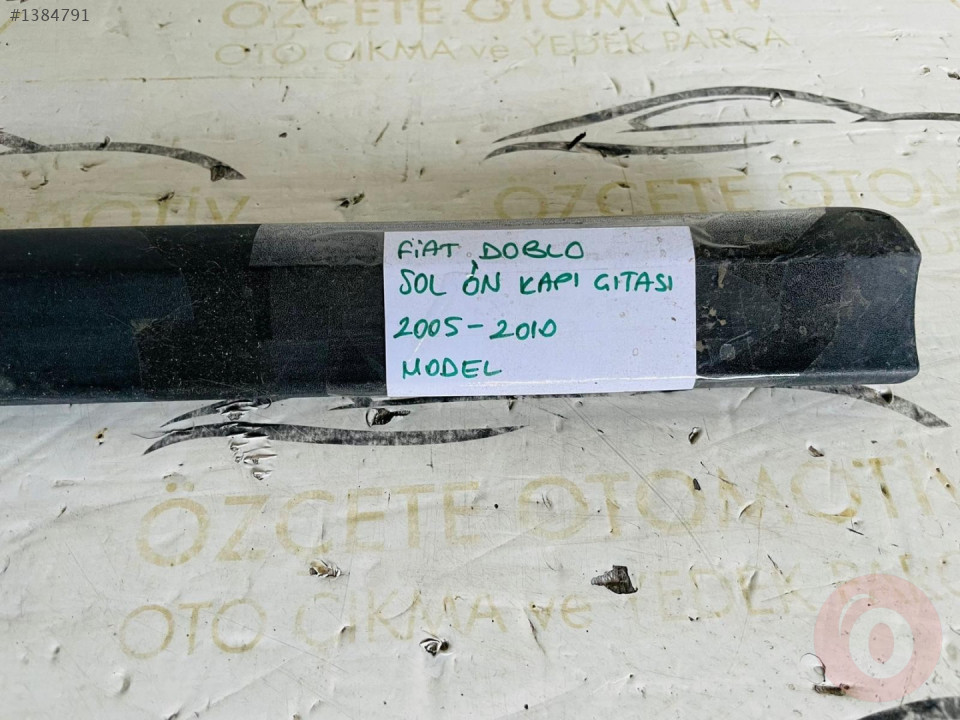 #1384791
ÖZÇETE OTOMOTİV
OTO ÇIKMA ve YEDEK PARÇA
ÖZÇETE OTOMOTİV
FiAT DOBLO
SOL ÖN KAPI GITASI
2005-2010
MODEL
ÖZÇETE OTOMOTİV
OTO ÇIKMA ve YEDEK PARÇA